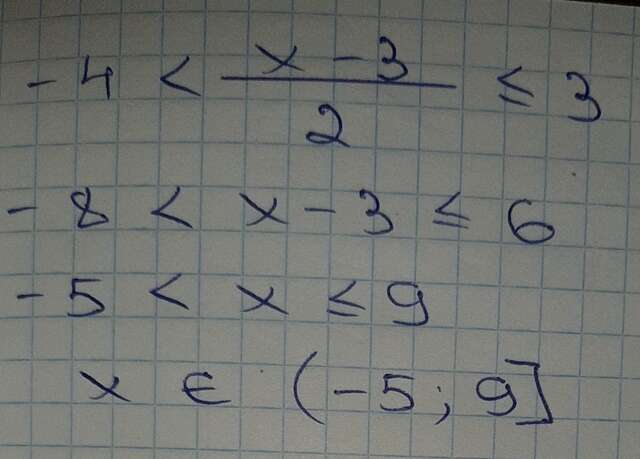 -4 < (x-3)/2 ≤ 3
-8 < x-3 ≤ 6
-5 < x ≤ 9
x ∈ (-5; 9]